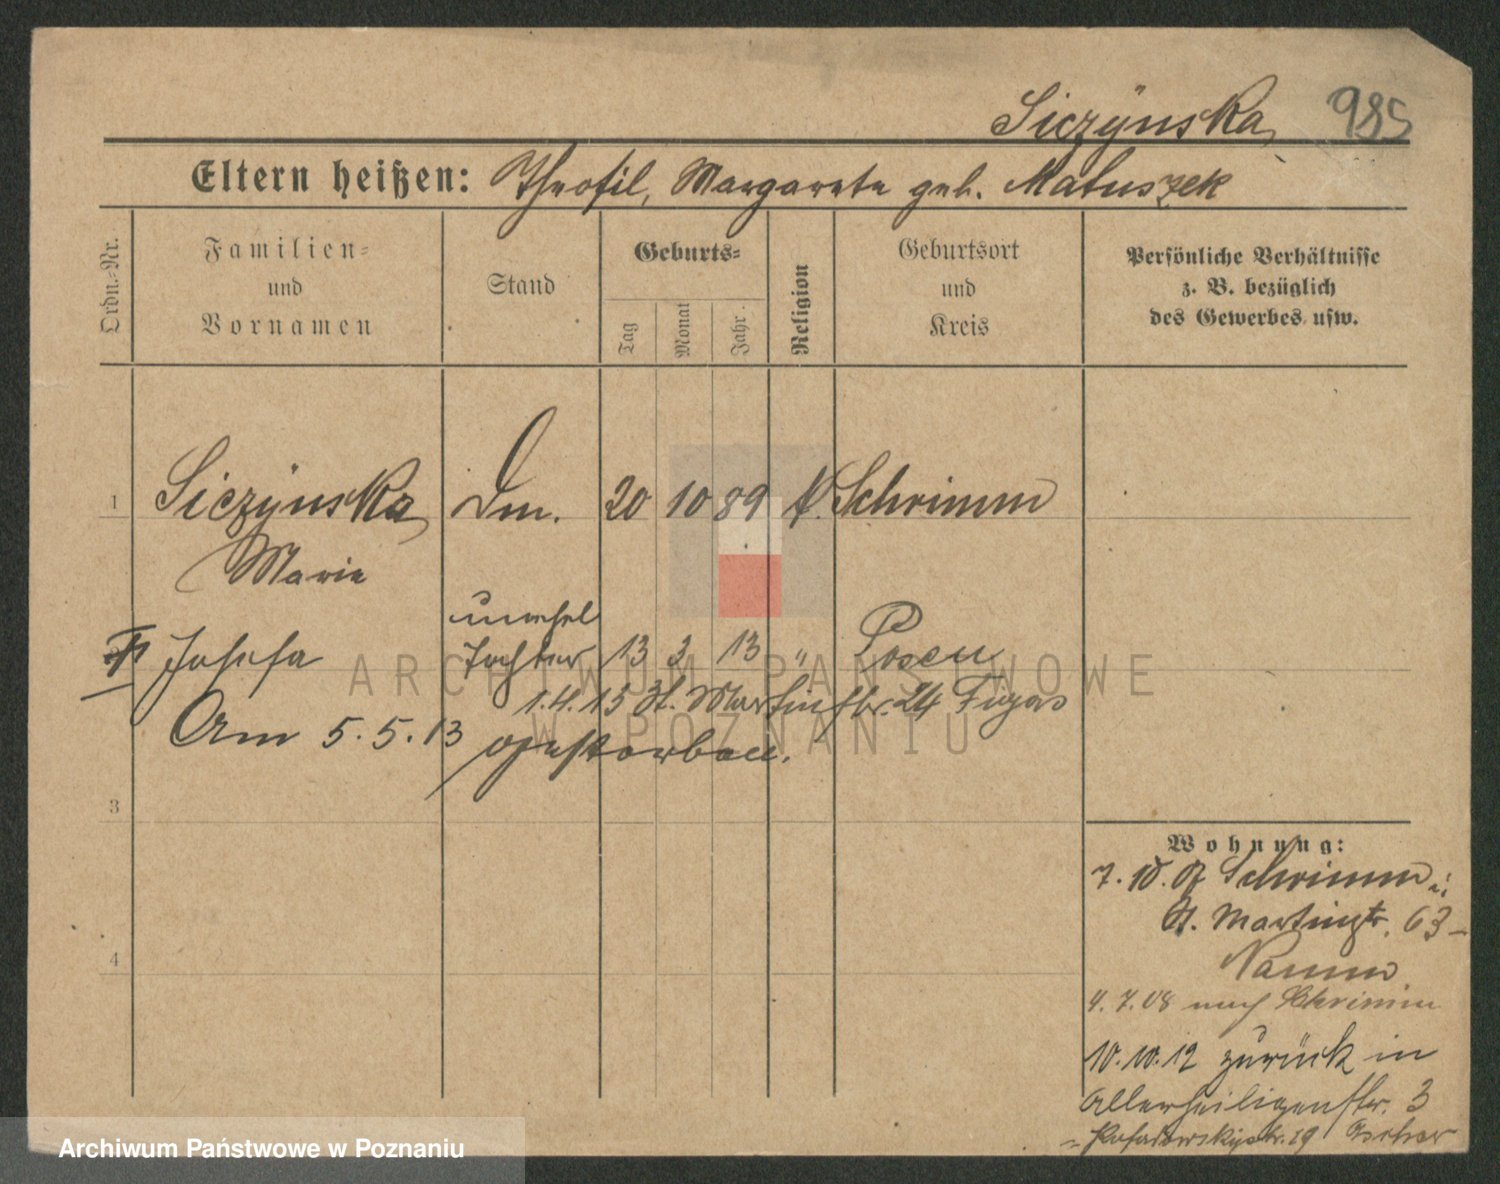 Siczynska 985
Eltern heißen: Theofil, Margarete geb. Matuszek
Ordn.-Nr.
Familien- und Vornamen
Stand
Geburts-
Tag
Monat
Jahr.
Religion
Geburtsort und Kreis
Persönliche Verhältnisse
z. B. bezüglich
des Gewerbes usw.
1 Siczÿnska Dm. 20 10 89 k. Schrimm
Marie
unehel
Josefa Tochter 13 3 13 " Posen
1.4.13 St. Martinstr. 24 Figas
Am 5.5.13 gestorben.
3
4
Wohnung:
7.10.07 Schrimm
St. Martinstr. 63
4.7.08 nach Schrimm
10.10.12 zurück in
Allerheiligenstr. 3
19
ARCHIWUM PAŃSTWOWE
W POZNANIU
Archiwum Państwowe w Poznaniu